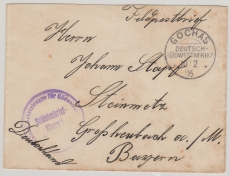 Feldpostbrief
GOCHAS
DEUTSCH-
SÜDWESTAFRIKA
Herrn
Johann Stapf
Steinmetz
Großheubach a/M.
Bayern
Deutschland